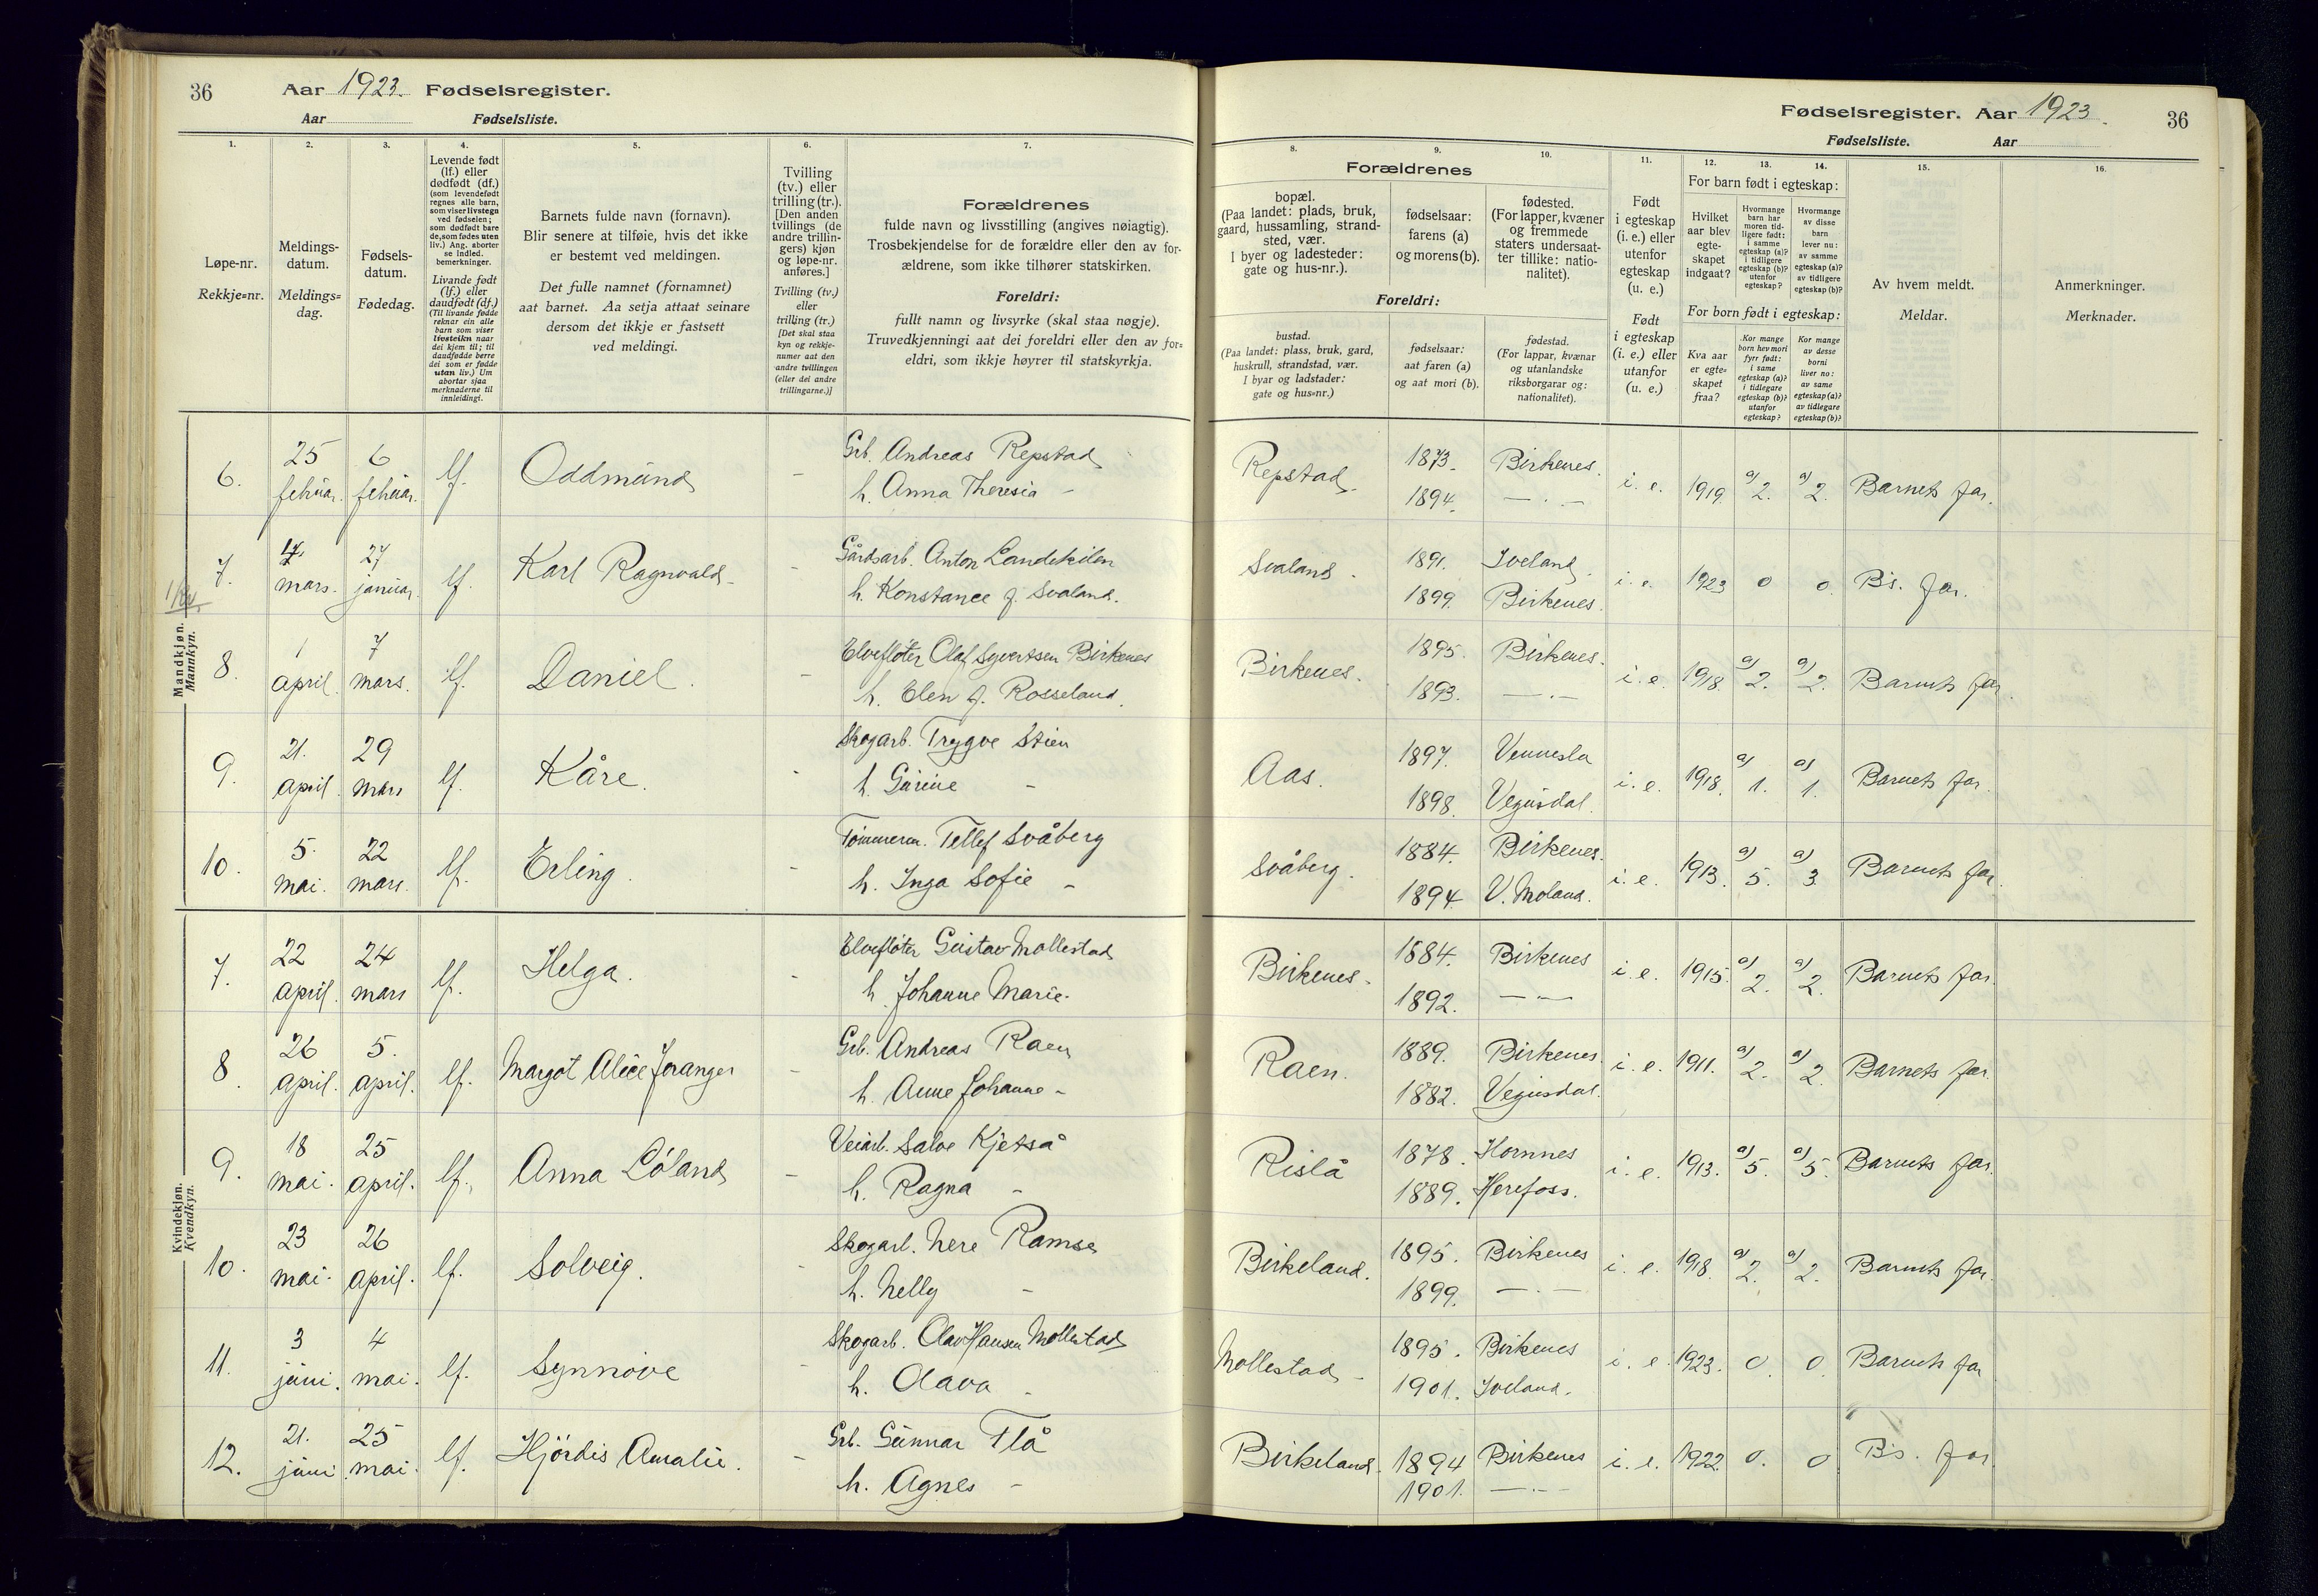 36 Aar 1923. Fødselsregister.
Aar Fødselsliste.
Fødselsregister. Aar 1923. 36
Fødselsliste. Aar
1. 2. 3. 4. 5. 6. 7.
Løpe-nr.
Rekkje-nr.
Meldings-
datum.
Meldings-
dag.
Fødsels-
datum.
Fødedag.
Levende født
(lf.) eller
dødfødt (df.)
(som levendefødt
regnes alle barn,
som viser livstegn
ved fødselen;
som dødfødt bare
de, som fødes uten
liv.) Ang. aborter
se indled.
bemerkninger.
Livande født
(lf.) eller
daudfødt (df.)
(Til livande fødde
reknar ein alle
barn som viser
livsteikn naar
dei kjem til; til
daudfødde berre
dei som er fødde
utan liv.) Um
abortar sjaa
merknaderne til
innleidingi.
Barnets fulde navn (fornavn).
Blir senere at tilføie, hvis det ikke
er bestemt ved meldingen.
Det fulle namnet (fornamnet)
aat barnet. Aa setja attaat seinare
dersom det ikkje er fastsett
ved meldingi.
Tvilling
(tv.) eller
trilling (tr.).
[Den anden
tvillings (de
andre trillin-
gers) kjøn
og løpe-nr.
anføres.]
Tvilling (tv.)
eller
trilling (tr.)
[Det skal staa
kyn og rekkje-
numer aat den
andre tvillingen
(eller dei andre
trillingarne.)]
Forældrenes
fulde navn og livsstilling (angives nøiagtig).
Trosbekjendelse for de forældre eller den av for-
ældrene, som ikke tilhører statskirken.
Foreldri:
fullt namn og livsyrke (skal staa nøgje).
Truvedkjenningi aat dei foreldri eller den av for-
eldri, som ikkje høyrer til statskyrkja.
8. 9. 10. 11. 12. 13. 14. 15. 16.
Forældrenes
bopæl.
(Paa landet: plads, bruk,
gaard, hussamling, strand-
sted, vær.
I byer og ladesteder:
gate og hus-nr.).
fødselsaar:
farens (a)
og morens (b).
fødested.
(For lapper, kvæner
og fremmede
staters undersaat-
ter tillike: natio-
nalitet).
Foreldri:
bustad.
(Paa landet: plass, bruk, gard,
huskrull, strandstad, vær.
I byar og ladstader:
gate og hus-nr.)
fødselsaar:
aat faren (a)
og aat mori (b).
fødestad.
(For lappar, kvænar
og utanlandske
riksborgarar og:
nationalitet).
Født
i egteskap
(i. e.) eller
utenfor
egteskap
(u. e.)
Født
i egteskap
(i. e.) eller
utanfor
(u. e.)
For barn født i egteskap:
Hvilket
aar blev
egte-
skapet
indgaat?
Hvormange
barn har
moren tid-
ligere født:
i samme
egteskap (a)?
i tidligere
egteskap (b)?
utenfor
egteskap?
Hvormange
av disse
barn
lever nu:
av samme
egteskap (a)?
av tidligere
egteskap (b)?
For born født i egteskap:
Kva aar
er egte-
skapet
fraa?
Kor mange
born hev mori
fyrr født:
i same
egteskap (a)?
i tidlegare
egteskap (b)?
utanfor
egteskap?
Kor mange
av desse
borni
liver no:
av same
egteskap (a)?
av tidlegare
egteskap (b)?
Av hvem meldt.
Meldar.
Anmerkninger.
Merknader.
Mandkjøn.
Mannkyn.
6. 25 februar. 6 februar. lf. Oddmund - Grb. Andreas Repstad
h. Anna Theresia -
Repstad. 1873. 1894. Birkenes. — . — i. e. 1919 a) 2. a) 2. Barnets far.
7. mars. 27 januar. lf. Karl Ragnvald - Gårdsarb. Anton Landekilen
h. Konstance f. Svaland.
Svaland. 1891. 1899. Iveland. Birkenes. i. e. 1923 0 0. B's. far.
8. 1 april. 7 mars. lf. Daniel. - Elvefløter Olaf Syvertsen Birkenes
h. Elen f. Rosseland.
Birkenes. 1895. 1893. Birkenes. — . — i. e. 1918. a) 2. a) 2. Barnets far.
9. 21. april. 29 mars lf. Kåre. - Skogarb. Trygve Stien
h. Gurine -
Aas. 1897. 1898. Vennesla Vegusdal. i. e. 1918. a) 1. a) 1. Barnets far.
10. 5. mai. 22 mars. lf. Erling. - Tømmerm. Tellef Svåberg
h. Inga Sofie -
Svåberg. 1884. 1894. Birkenes. V. Moland. i. e. 1913. a) 5. a) 3. Barnets far.
Kvindekjøn.
Kvendkyn.
7. 22 april. 24 mars lf. Helga. - Elvefløter Gustav Mollestad
h. Johanne Marie.
Birkenes. 1884. 1892. Birkenes — — i. e. 1915. a) 2. a) 2. Barnets far.
8. 26 april. 5. april. lf. Margot Alice Joranger - Grb. Andreas Raen
h. Anne Johanne -
Raen. 1889. 1882. Birkenes. Vegusdal. i. e. 1911. a) 2. a) 2. Barnets far.
9. 18 mai. 25 april. lf. Anna Lóland - Veiarb. Salve Kjetså
h. Ragna -
Rislå 1878. 1889. Hornnes Herefoss. i. e. 1913. a) 5. a) 5. Barnets far.
10. 23 mai. 26 april. lf. Solveig. - Skogarb. Nere Ramse
h. Nelly -
Birkeland. 1895. 1899. Birkenes — . — i. e. 1918. a) 2. a) 2. Barnets far.
11. 3 juni. 4 mai. lf. Synnøve - Skogarb. Olav Hansen Mollestad
h. Olava -
Mollestad - 1895. 1901. Birkenes Iveland. i. e. 1923. 0. 0. Barnets far
12. 21. juni 25 mai. lf. Hjördis Amalie. - Grb. Gunnar Flå
h. Agnes -
Birkeland. 1894 1901. Birkenes — . — i. e. 1922. 0. 0 B's. far